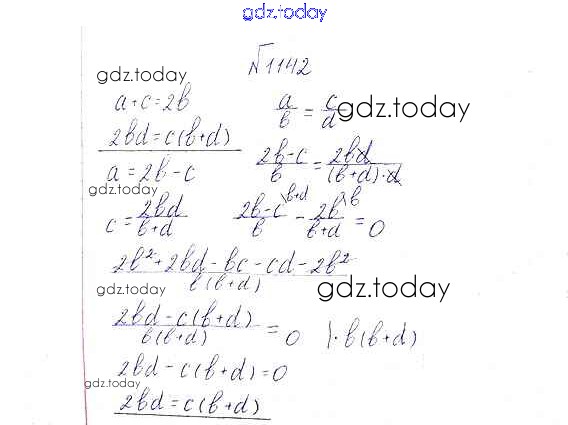 gdz.today
№1142
gdz.today
a+c=2b
a/b = c/d
gdz.today
2bd=c(b+d)
a=2b-c
(2b-c)/b = 2bd/((b+d)·d)
gdz.today
c = 2bd/(b+d)
(2b-c)/b \b+d - 2b/(b+d) \b = 0
(2b²+2bd-bc-cd-2b²)/(b(b+d))
gdz.today
gdz.today
(2bd-c(b+d))/(b(b+d)) = 0 |·b(b+d)
2bd-c(b+d)=0
gdz.today
2bd=c(b+d)